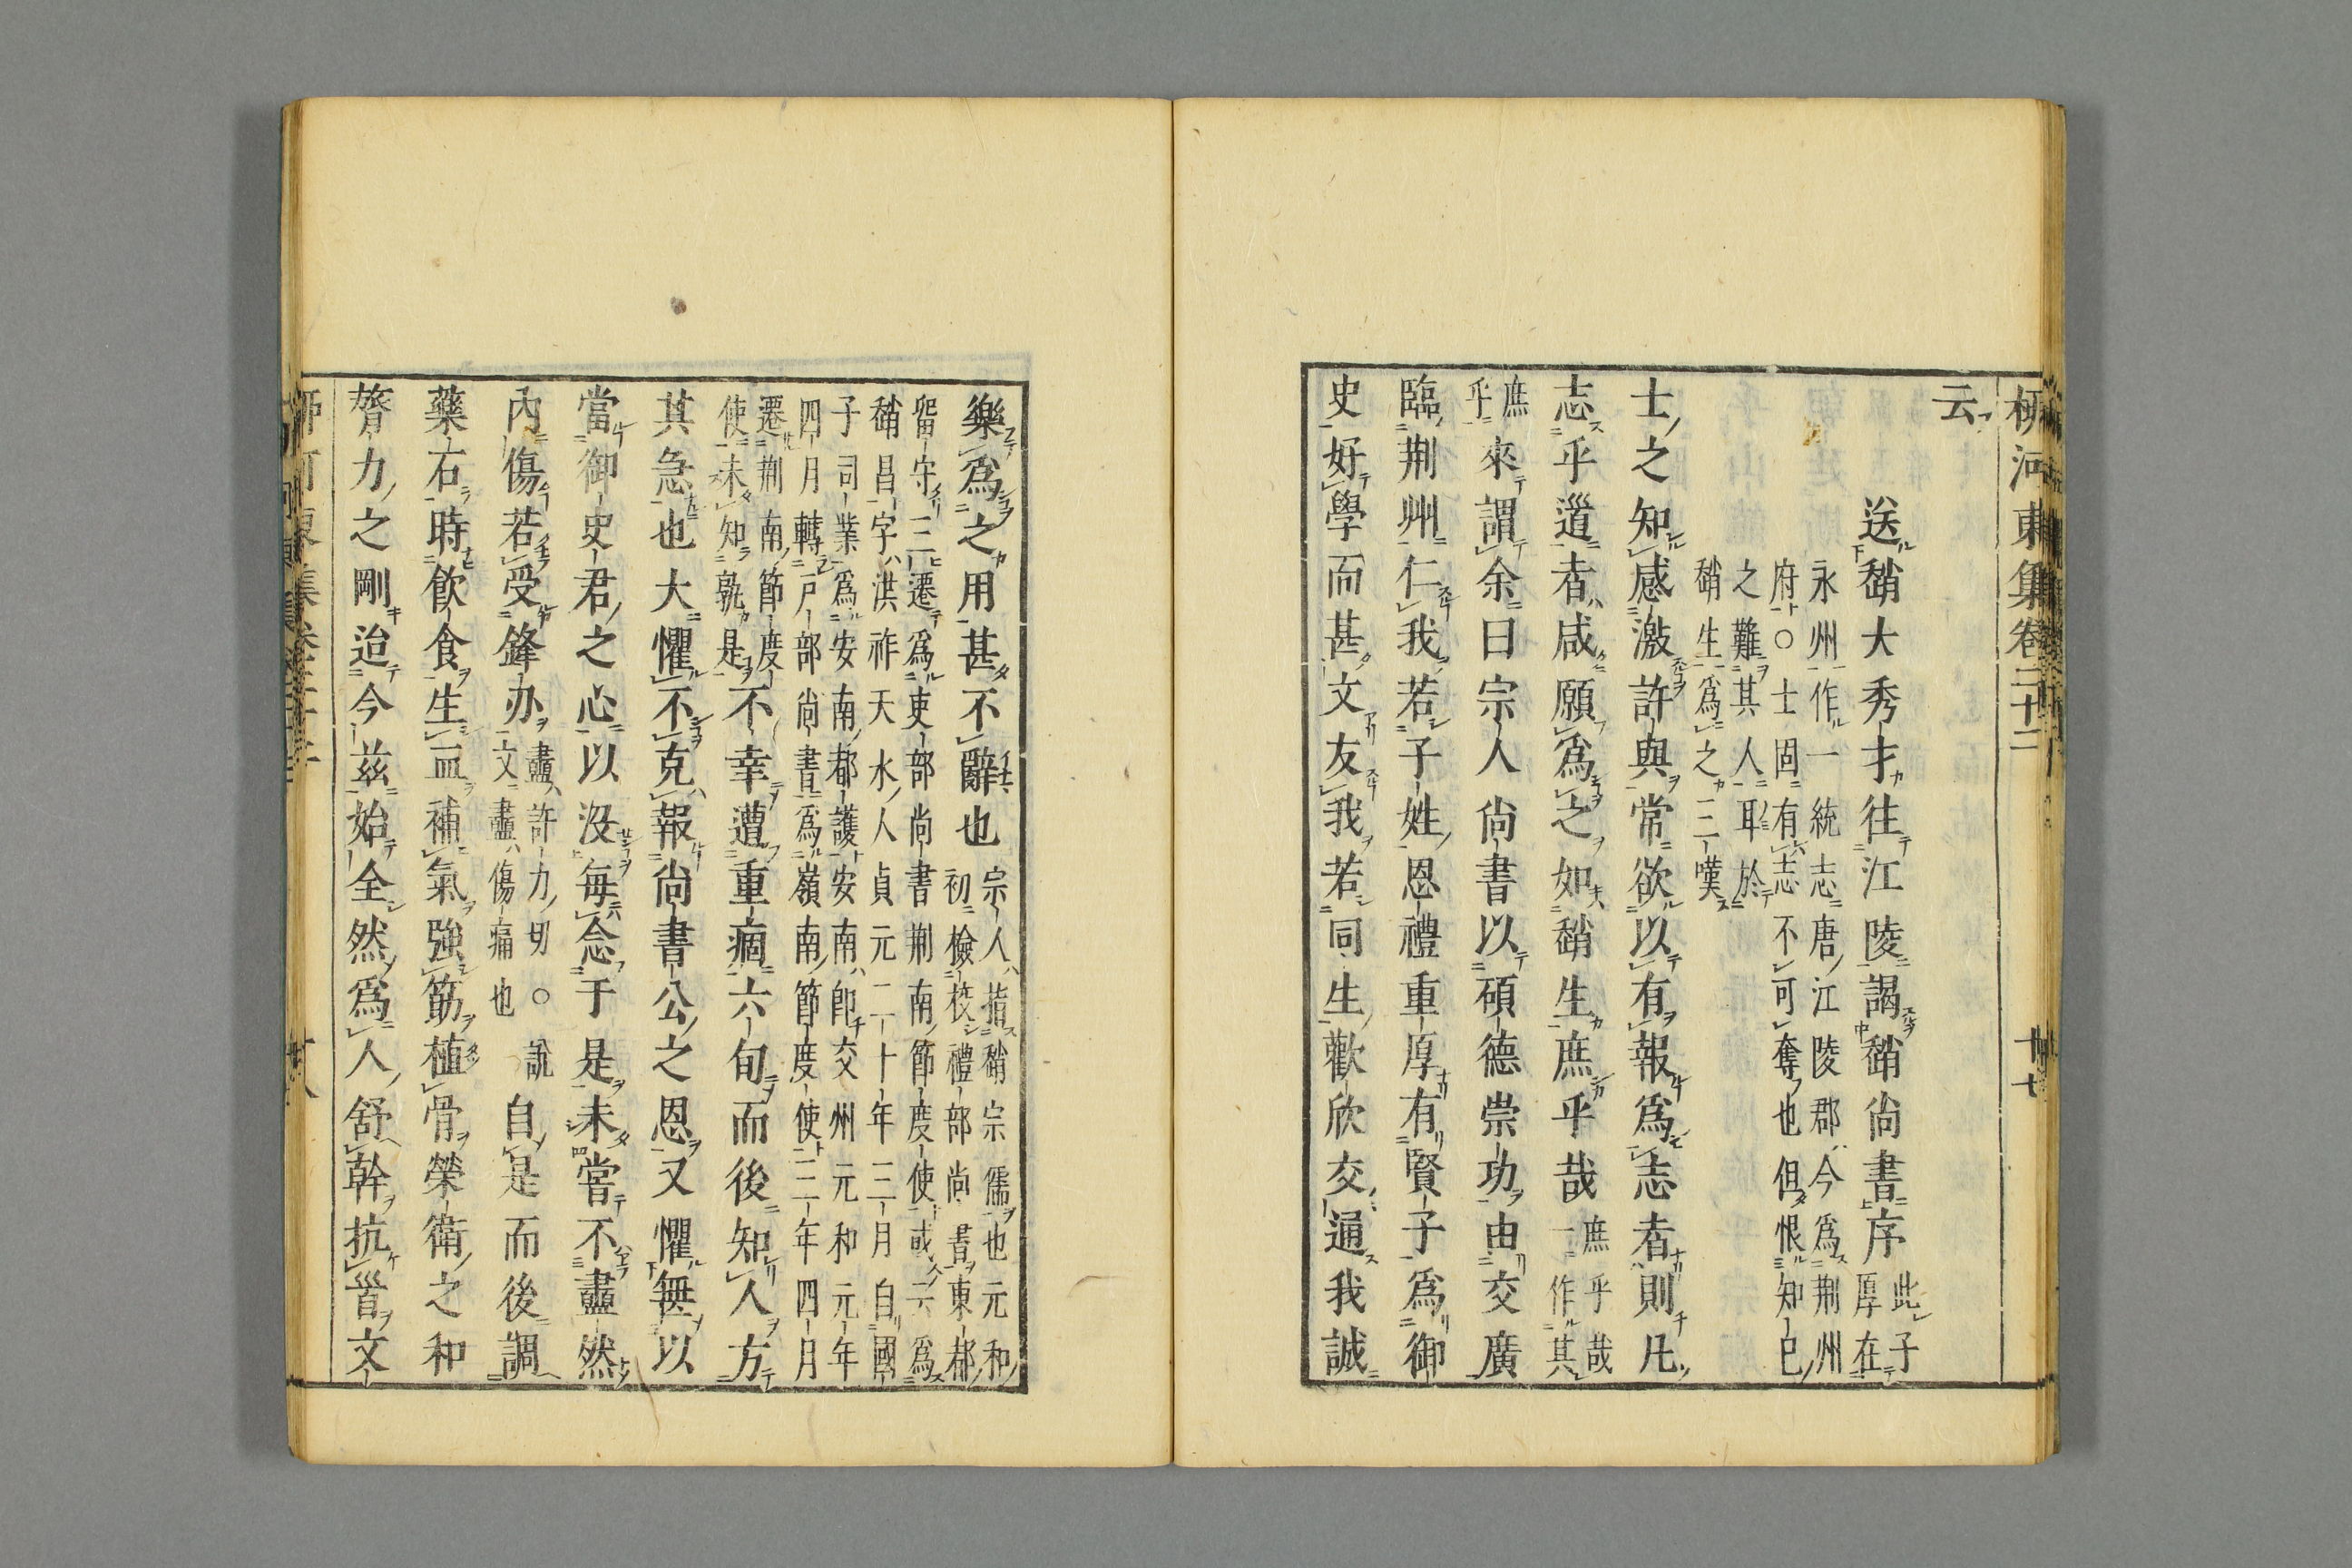 柳河東集卷二十二
十七
云
送趙大秀才往江陵謁趙尚書序
此子
厚在
永州作一統志唐江陵郡今為荆州
府○士固有志不可奪也但恨知已
之難其人耳於
趙生為之三嘆
士之知感激許與常欲以有報為志者則凡
志乎道者咸願為之如趙生庶乎哉
庶乎哉
一作其
庶
乎
來謂余曰宗人尚書以碩德崇功由交廣
臨荆州仁我若子姓恩禮重厚有賢子為御
史好學而甚文友我若同生歡欣交通我誠
樂為之用甚不辭也
宗人指趙宗儒也元和
初檢校禮部尚書東都
留守三遷為吏部尚書荆南節度使或云為
趙昌字洪祚天水人貞元二十年三月自國
子司業為安南都護安南即交州元和元年
四月轉戸部尚書為嶺南節度使三年四月
遷荆南節度
使未知孰是
不幸遭重痼六旬而後知人方
其急也大懼不克報尚書公之恩又懼無以
當御史君之心以没每念于是未嘗不盡然
內傷若受鋒刃
盡許力切○說
文盡傷痛也
自是而後調
藥石時飲食生血補氣強筋植骨榮衛之和
膂力之剛迨今兹始全然為人舒幹抗首文